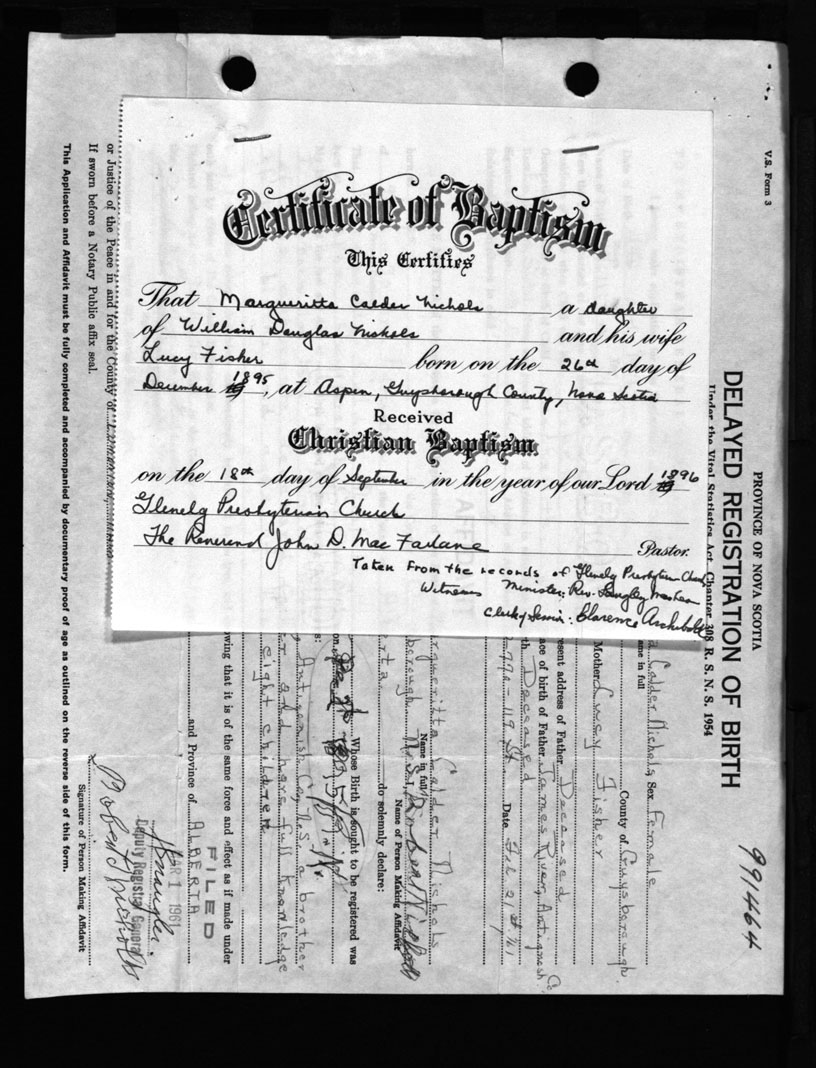 Certificate of Baptism
This Certifies
That Margueritta Calder Nichols a daughter
of William Douglas Nichols and his wife
Lucy Fisher born on the 26th day of
December 1895, at Aspen, Guysborough County, Nova Scotia
Received
Christian Baptism
on the 18th day of September in the year of our Lord 1896
Glenelg Presbyterian Church
The Reverend John D. MacFarlane Pastor.
Taken from the records of Glenelg Presbyterian
Witnesses Minister: Rev. Langley
Clerk of Session: Clarence Archibald
V.S. Form 3
PROVINCE OF NOVA SCOTIA
DELAYED REGISTRATION OF BIRTH
Under the Vital Statistics Act, Chapter 308 R. S. N. S. 1954
991464
Calder Nichols Sex Female
name in full
County of Guysborough
Mother Lucy Fisher
present address of Father Deceased
place of birth of Father James River, Antigonish Co
Deceased
119 St. Date Feb 21st/61
Margueritta Calder Nichols
Name in full
N.S.
Name of Person Making Affidavit
do solemnly declare:
Whose Birth is sought to be registered was
Antigonish Co, N.S. a brother
and have full knowledge
eight children
wing that it is of the same force and effect as if made under
FILED
and Province of ALBERTA
MAR 1 1961
Deputy Registrar General
Robert Nichols
Signature of Person Making Affidavit
or Justice of the Peace in and for the County of
If sworn before a Notary Public affix seal.
This Application and Affidavit must be fully completed and accompanied by documentary proof of age as outlined on the reverse side of this form.